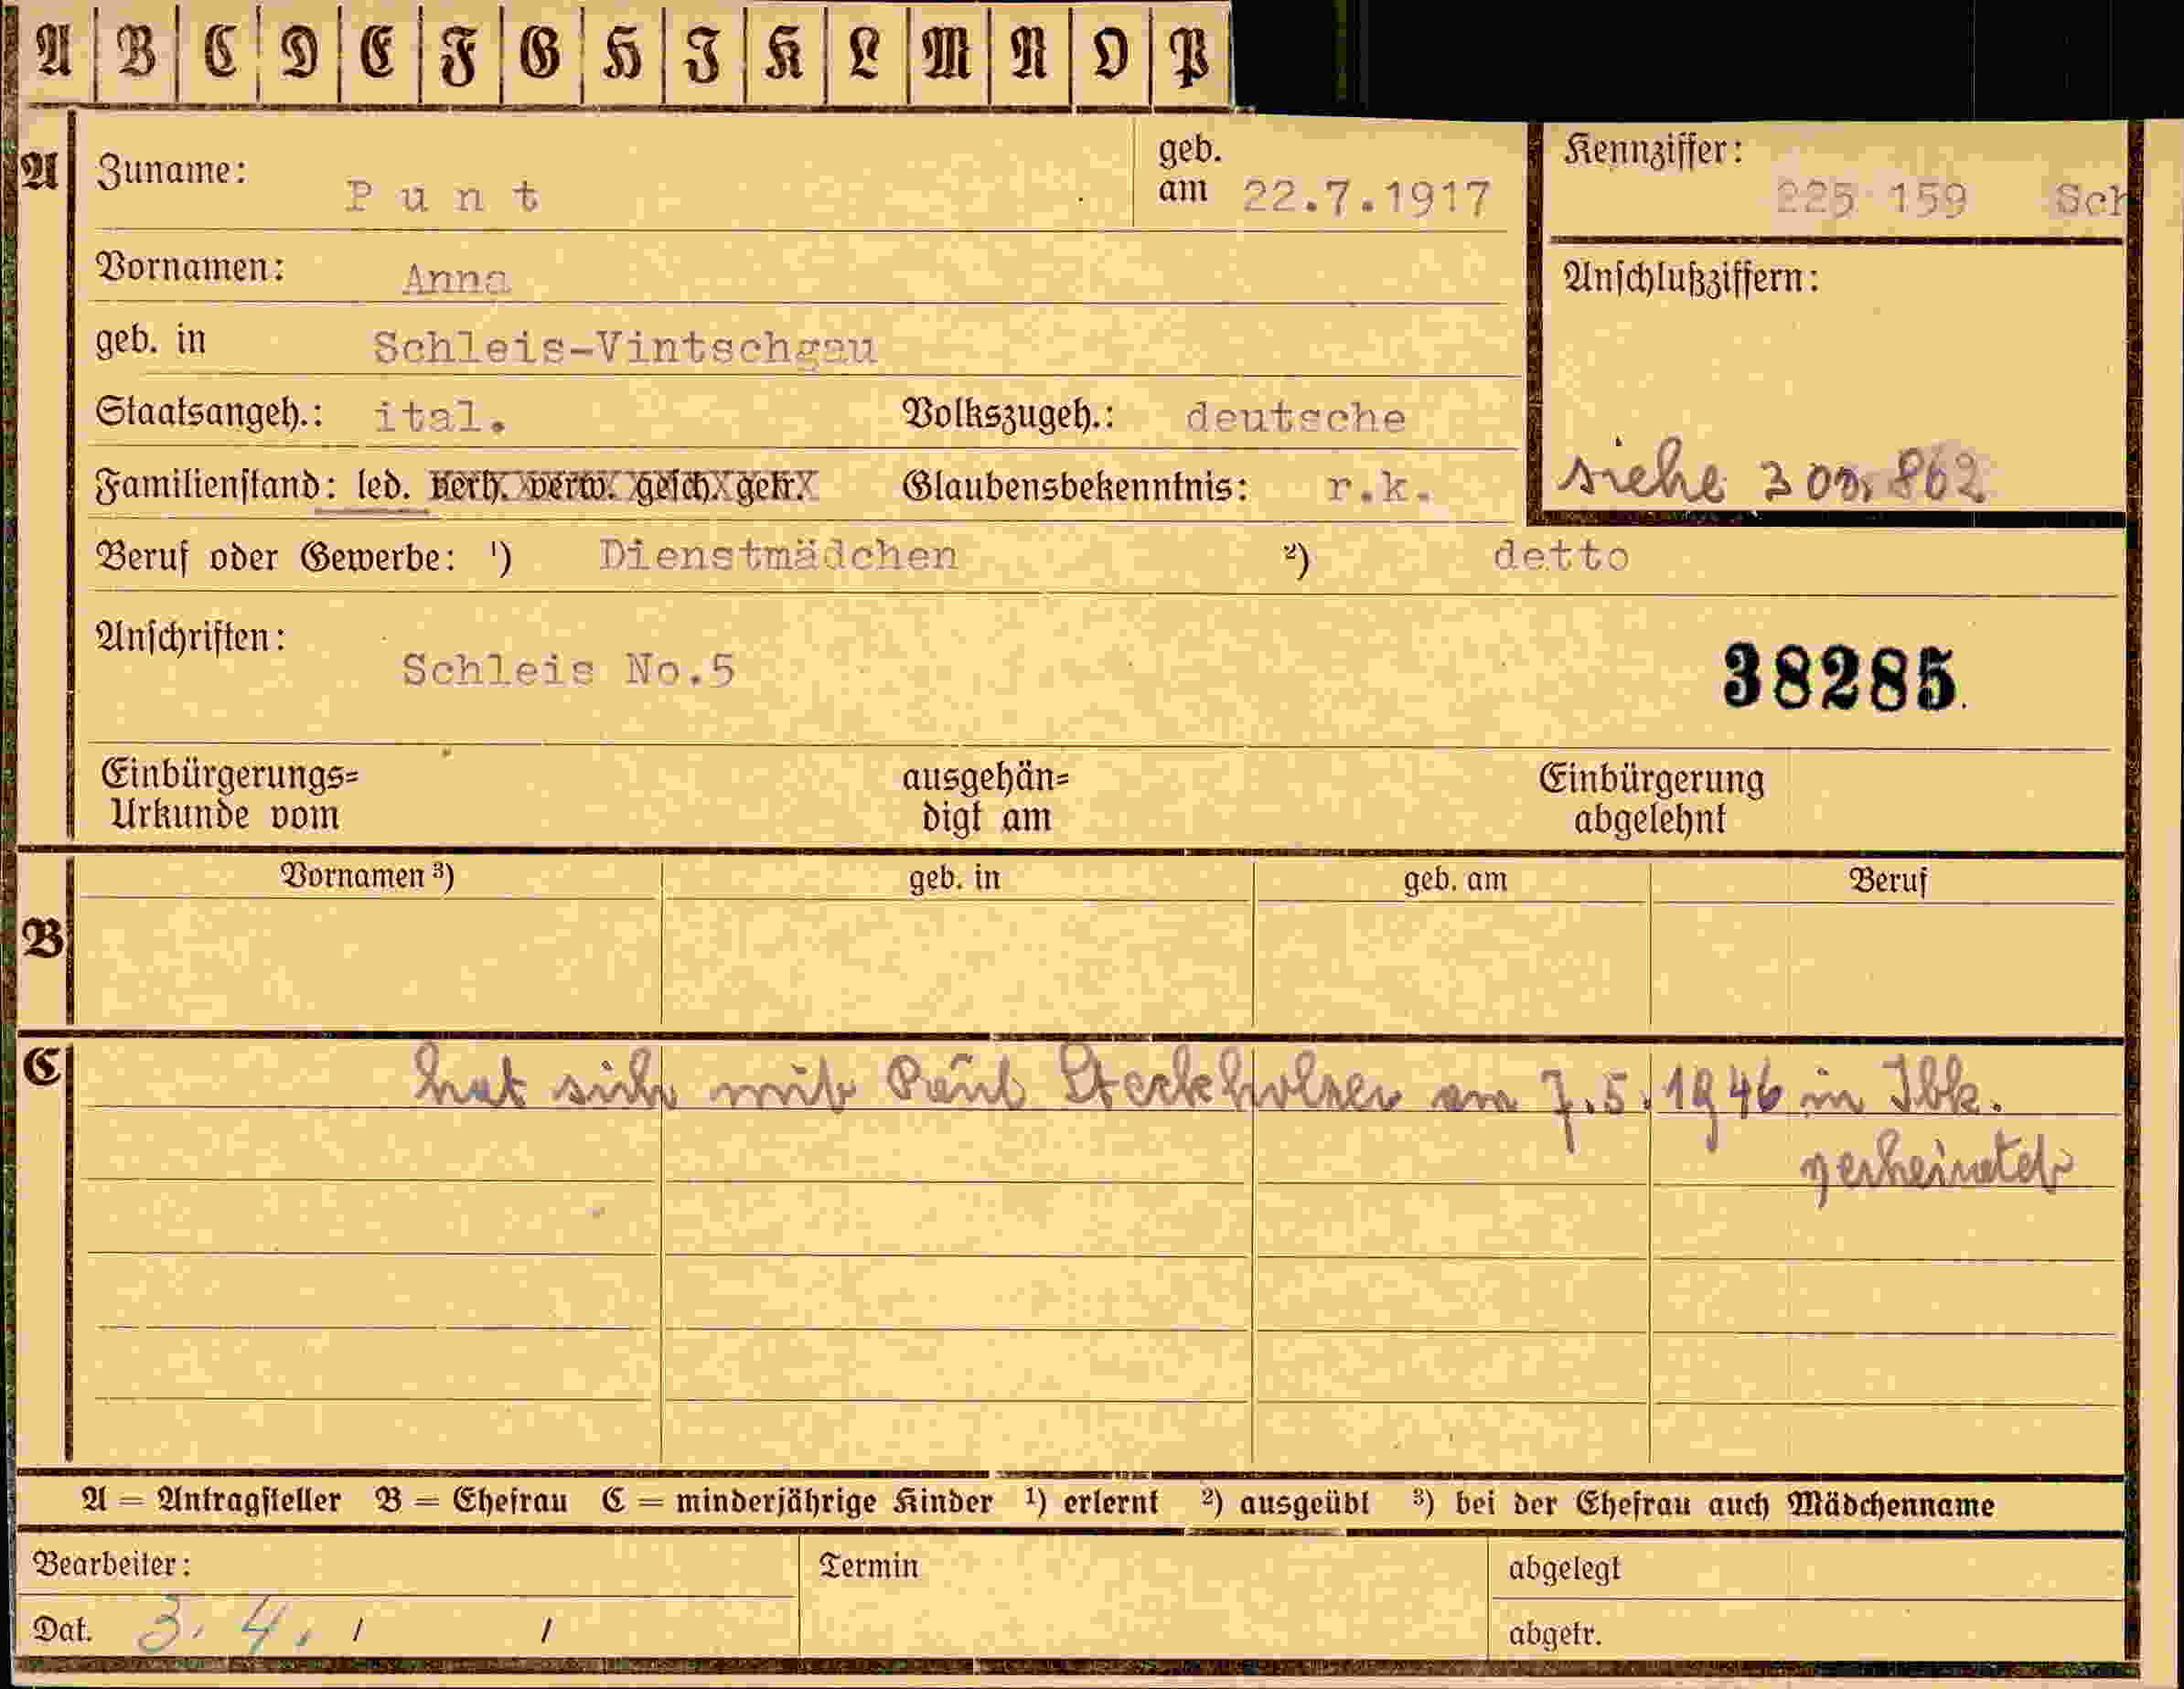 A B C D E F G H I K L M N O P
A Zuname: Punt geb. am 22.7.1917
Kennziffer: 225 159 Sch
Vornamen: Anna
Anschlußziffern:
geb. in Schleis-Vintschgau
Staatsangeh.: ital. Volkszugeh.: deutsche
siehe 300.862
Familienstand: led. verh. verw. gesch. getr. Glaubensbekenntnis: r.k.
Beruf oder Gewerbe: ¹) Dienstmädchen ²) detto
Anschriften: Schleis No.5
38285
Einbürgerungs=
Urkunde vom
ausgehän=
digt am
Einbürgerung
abgelehnt
B Vornamen ³) geb. in geb. am Beruf
C hat sich mit Paul Steckholzer am 7.5.1946 in Ibk.
verheiratet
A = Antragsteller B = Ehefrau C = minderjährige Kinder ¹) erlernt ²) ausgeübt ³) bei der Ehefrau auch Mädchenname
Bearbeiter: Termin abgelegt
Dat. 3. 4. / / abgetr.